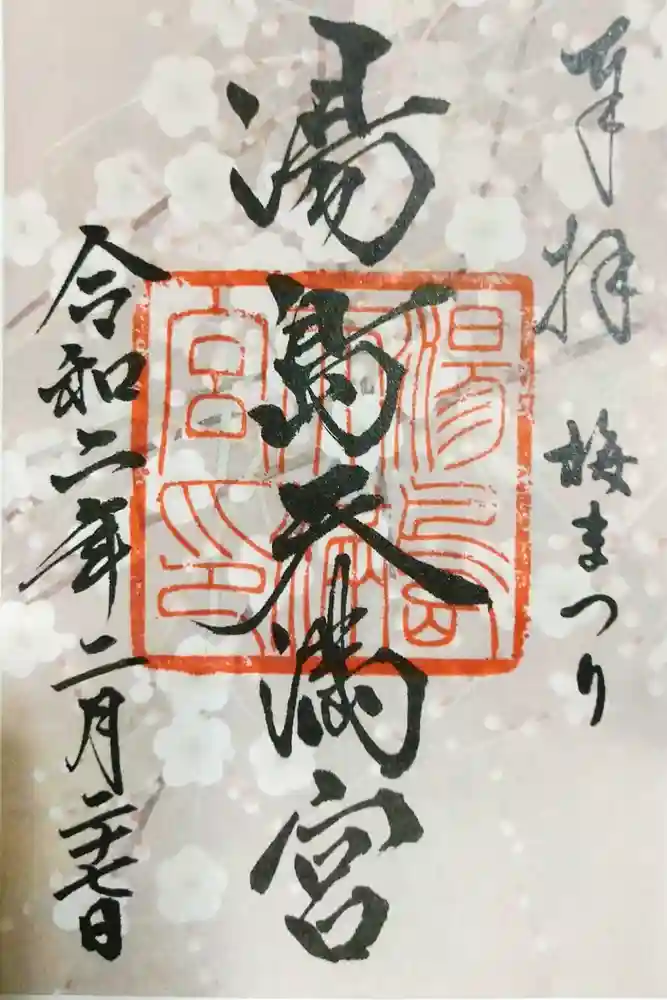 奉拝 梅まつり
湯島天満宮
湯島天満宮印
令和二年二月二十七日